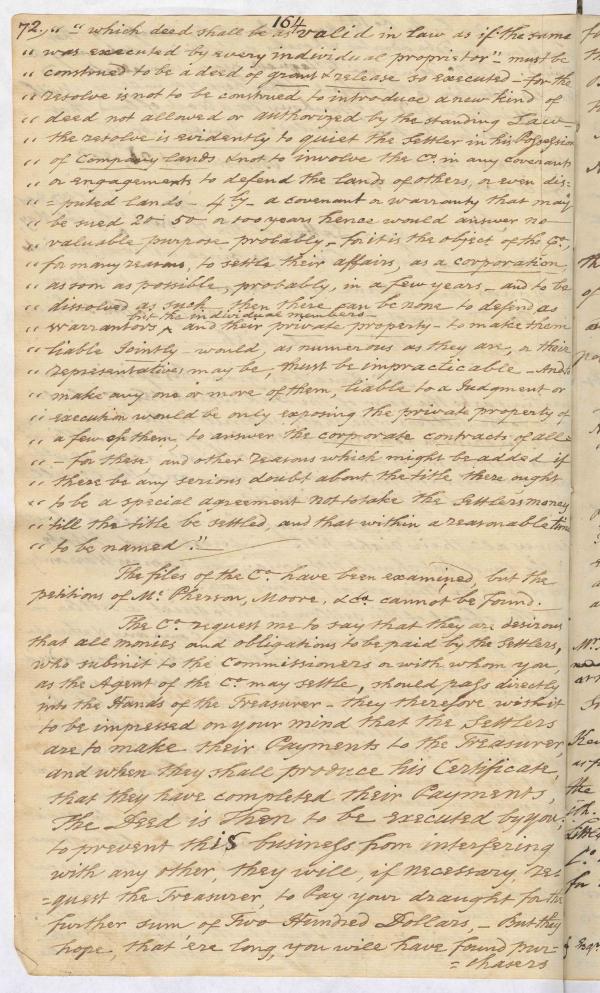 164
72. " " which deed shall be as valid in law as if the same
" was executed by every individual proprietor" must be
" construed to be a deed of grant & release so executed – for the
" resolve is not to be construed to introduce a new kind of
" deed not allowed or authorized by the standing Law –
" the resolve is evidently to quiet the Settler in his Possession
" of Company lands & not to involve the Co. in any covenants
" or engagements to defend the lands of others, or even dis=
" =puted lands – 4ly – a covenant or warranty that may
" be sued 20 50 or 100 years hence would answer no
" valuable purpose probably – for it is the object of the Co.,
" for many reasons, to settle their affairs, as a corporation,
" as soon as possible, probably, in a few years – and to be
" dissolved as such, then there can be none to defend as
but the individual members –
" warrantors ^ and their private property – to make them
" liable Jointly – would, as numerous as they are, or their
" representatives may be, must be impracticable – And to
" make any one or more of them, liable to a Judgment or
" execution would be only exposing the private property of
" a few of them, to answer the corporate contracts of all –
" – for these, and other reasons which might be added if
" there be any serious doubt about the title there ought
" to be a special agreement not to take the Settlers money
" till the title be settled, and that within a reasonable time
" to be named."
The files of the Co. have been examined, but the
petitions of Mc. Pherson, Moore, &ca. cannot be found.
The Co. request me to say that they are desirous
that all monies and obligations to be paid by the Settlers,
who submit to the Commissioners or with whom you,
as the Agent of the Co. may settle, should pass directly
into the Hands of the Treasurer – they therefore wish it
to be impressed on your mind that the Settlers
are to make their Payments to the Treasurer,
and when they shall produce his Certificate,
that they have completed their Payments,
The Deed is Then to be executed by you;
to prevent this business from interfering
with any other, they will, if necessary, re=
=quest the Treasurer, to Pay your draught for the
further sum of Two Hundred Dollars, – But they
hope, that ere long, you will have found pur=
=chasers